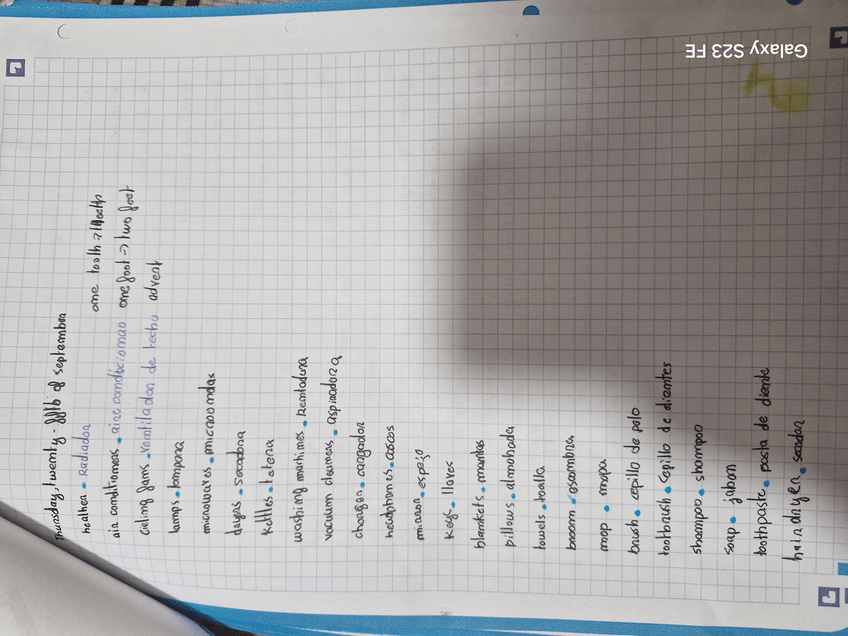 Thursday, twenty-fifth of september
heather - Radiador
one tooth → teeth
air conditioners • aire acondicionao
one foot → two feet
ceiling fans - ventilador de techo
advent
lamps - lampara
microwaves • microondas
dryers - secadora
Kettles • tetera
washing machines •
vacuum cleaners • aspiradora
charger - cargador
headphones • cascos
mirror • espejo
Keys • llaves
blankets • mantas
pillows • almohada
towels • toalla
broom •
moop • mopa
brush • cepillo de pelo
toothbrush • cepillo de dientes
shampoo • shampoo
soap • jabon
toothpaste • pasta de diente
hair dryer • secador
Galaxy S23 FE